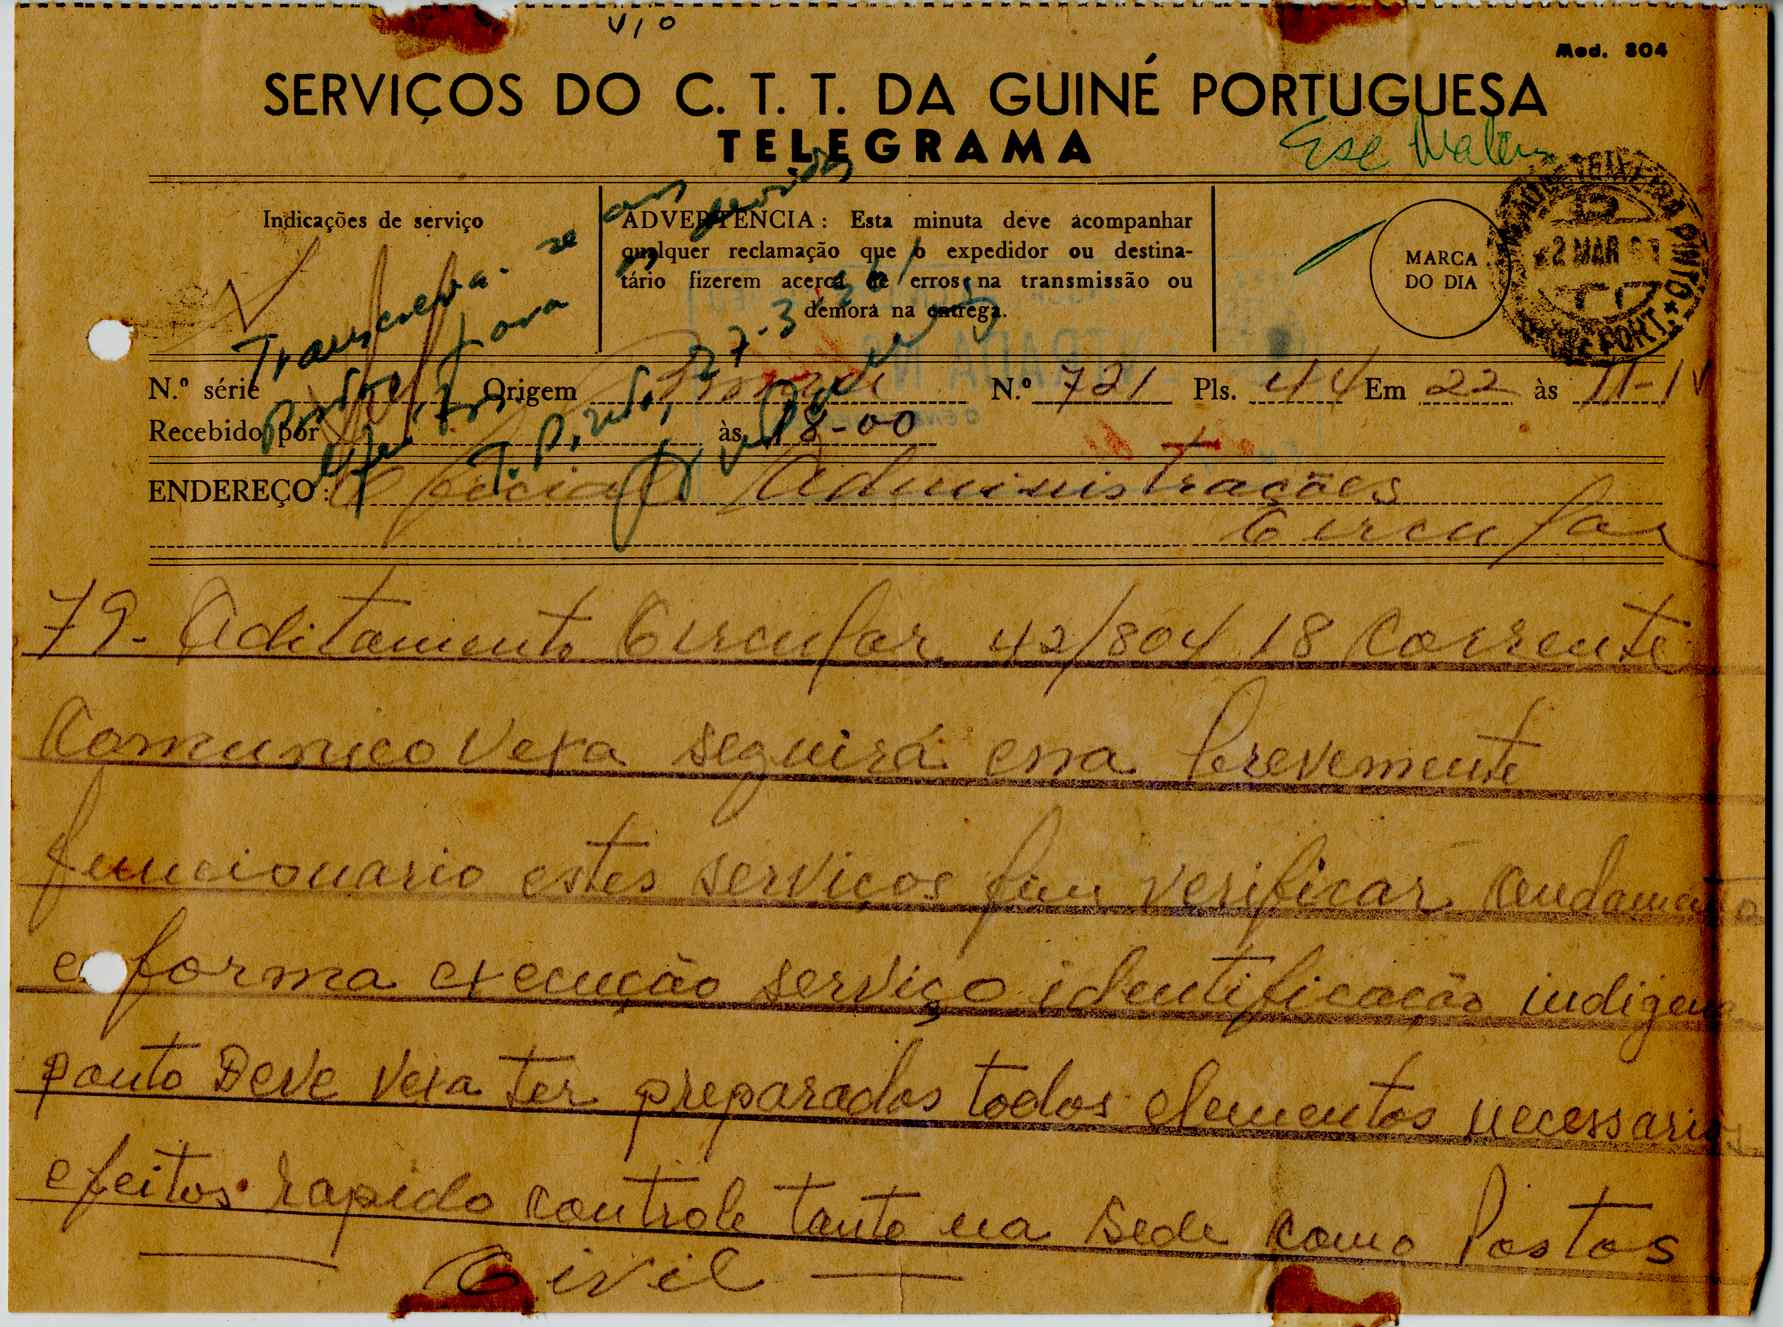 V/0
Mod. 804
SERVIÇOS DO C. T. T. DA GUINÉ PORTUGUESA
TELEGRAMA
Indicações de serviço
ADVERTÊNCIA: Esta minuta deve acompanhar
qualquer reclamação que o expedidor ou destina-
tário fizerem acerca de erros na transmissão ou
demora na entrega.
MARCA
DO DIA
TEIXEIRA PINTO
22 MAR
PORT.
Transcreva-se aos
Postos para os devidos
27-3
N.º série Origem Bissau N.º 721 Pls. 44 Em 22 às 11-1
Recebido por às 18-00
ENDEREÇO: Oficial Administrações
Circular
79- Aditamento Circular 42/804 18 Corrente
Comunico Vexa seguirá essa brevemente
funcionario estes serviços fim verificar andamento
e forma execução serviço identificação indigena
ponto Deve Vexa ter preparados todos elementos necessarios
efeitos rapido controle tanto na sede como Postos
Civil